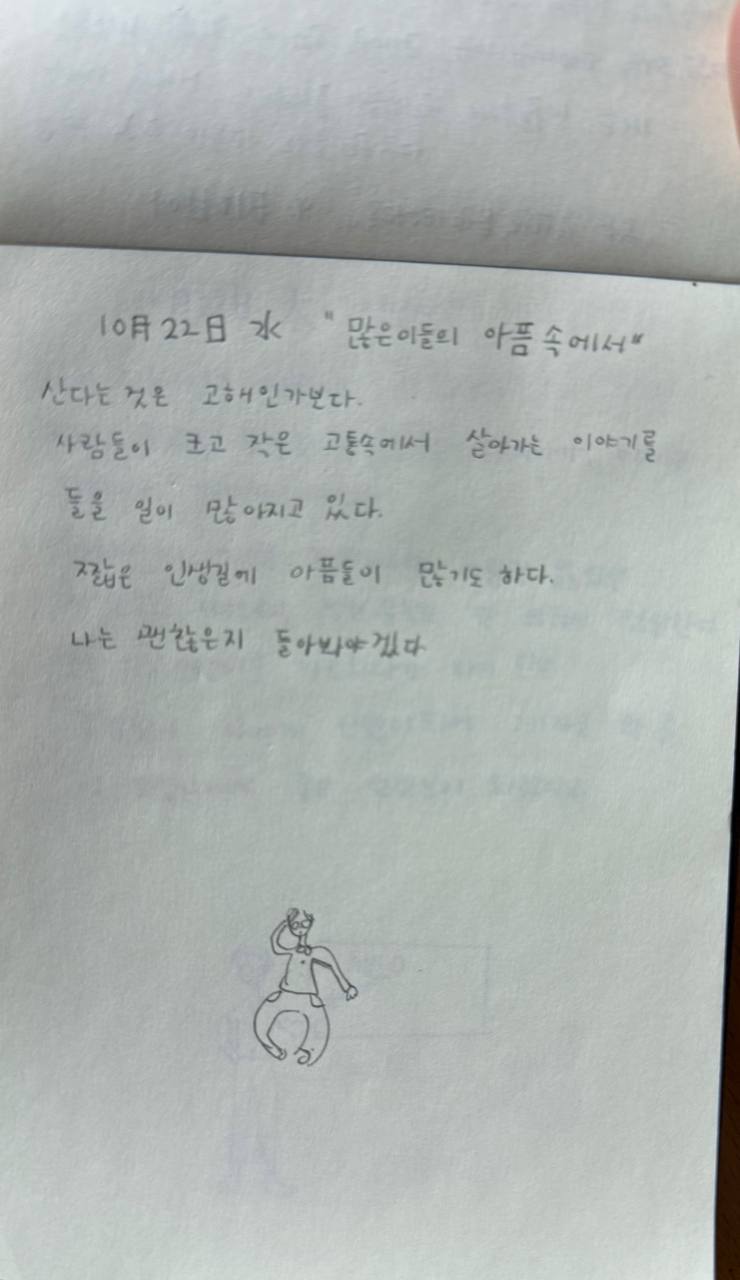 10月 22日 水 "많은이들의 아픔속에서"
산다는 것은 고해인가보다.
사람들이 크고 작은 고통속에서 살아가는 이야기를
들을 일이 많아지고 있다.
짧은 인생길에 아픔들이 많기도 하다.
나는 괜찮은지 돌아봐야겠다